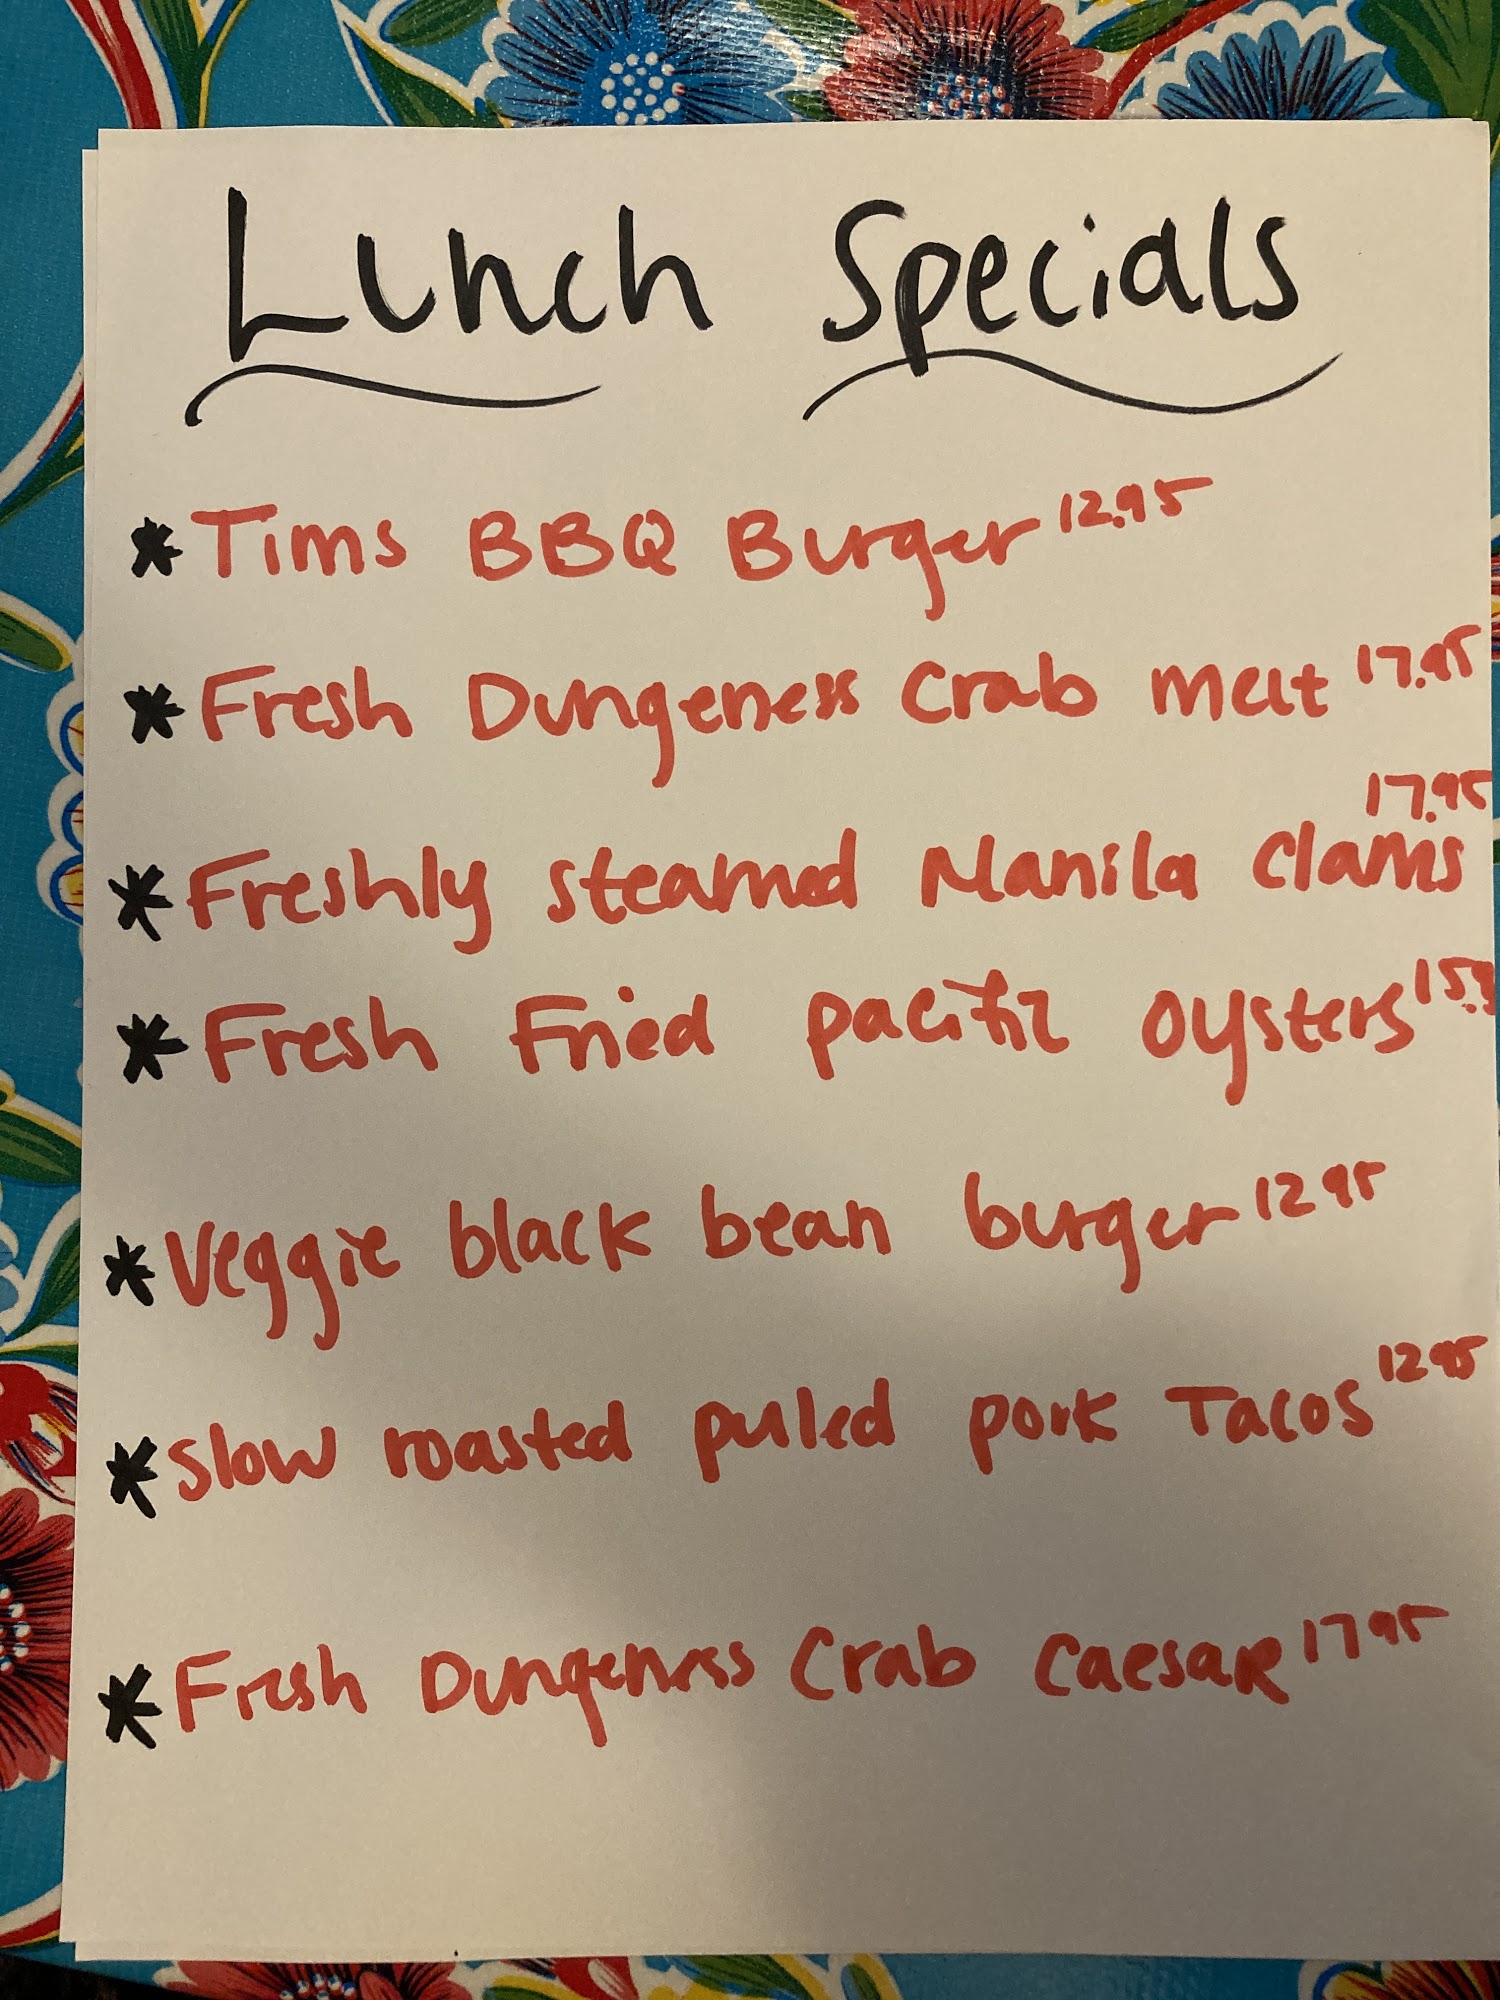 Lunch Specials
* Tims BBQ Burger 12.95
* Fresh Dungeness Crab melt 17.95
17.95
* Freshly steamed Manila Clams
* Fresh Fried pacific oysters
* Veggie black bean burger 12 95
* Slow roasted pulled pork Tacos 12 95
* Fresh Dungeness Crab Caesar 17 95